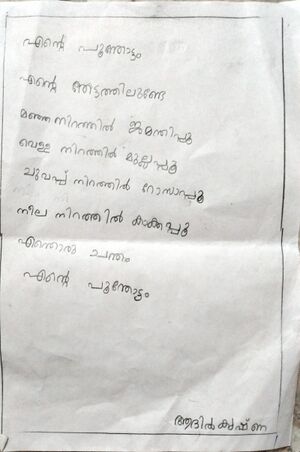 എന്റെ പൂന്തോട്ടം
എന്റെ തോട്ടത്തിലുണ്ടേ
മഞ്ഞനിറത്തിൽ ജമന്തിപ്പൂ
വെള്ള നിറത്തിൽ മുല്ലപ്പൂ
ചുവപ്പ് നിറത്തിൽ റോസാപ്പൂ
നീല നിറത്തിൽ കാക്കപ്പൂ
എന്തൊരു ചന്തം
എന്റെ പൂന്തോട്ടം
ആദിൽകൃഷ്ണ